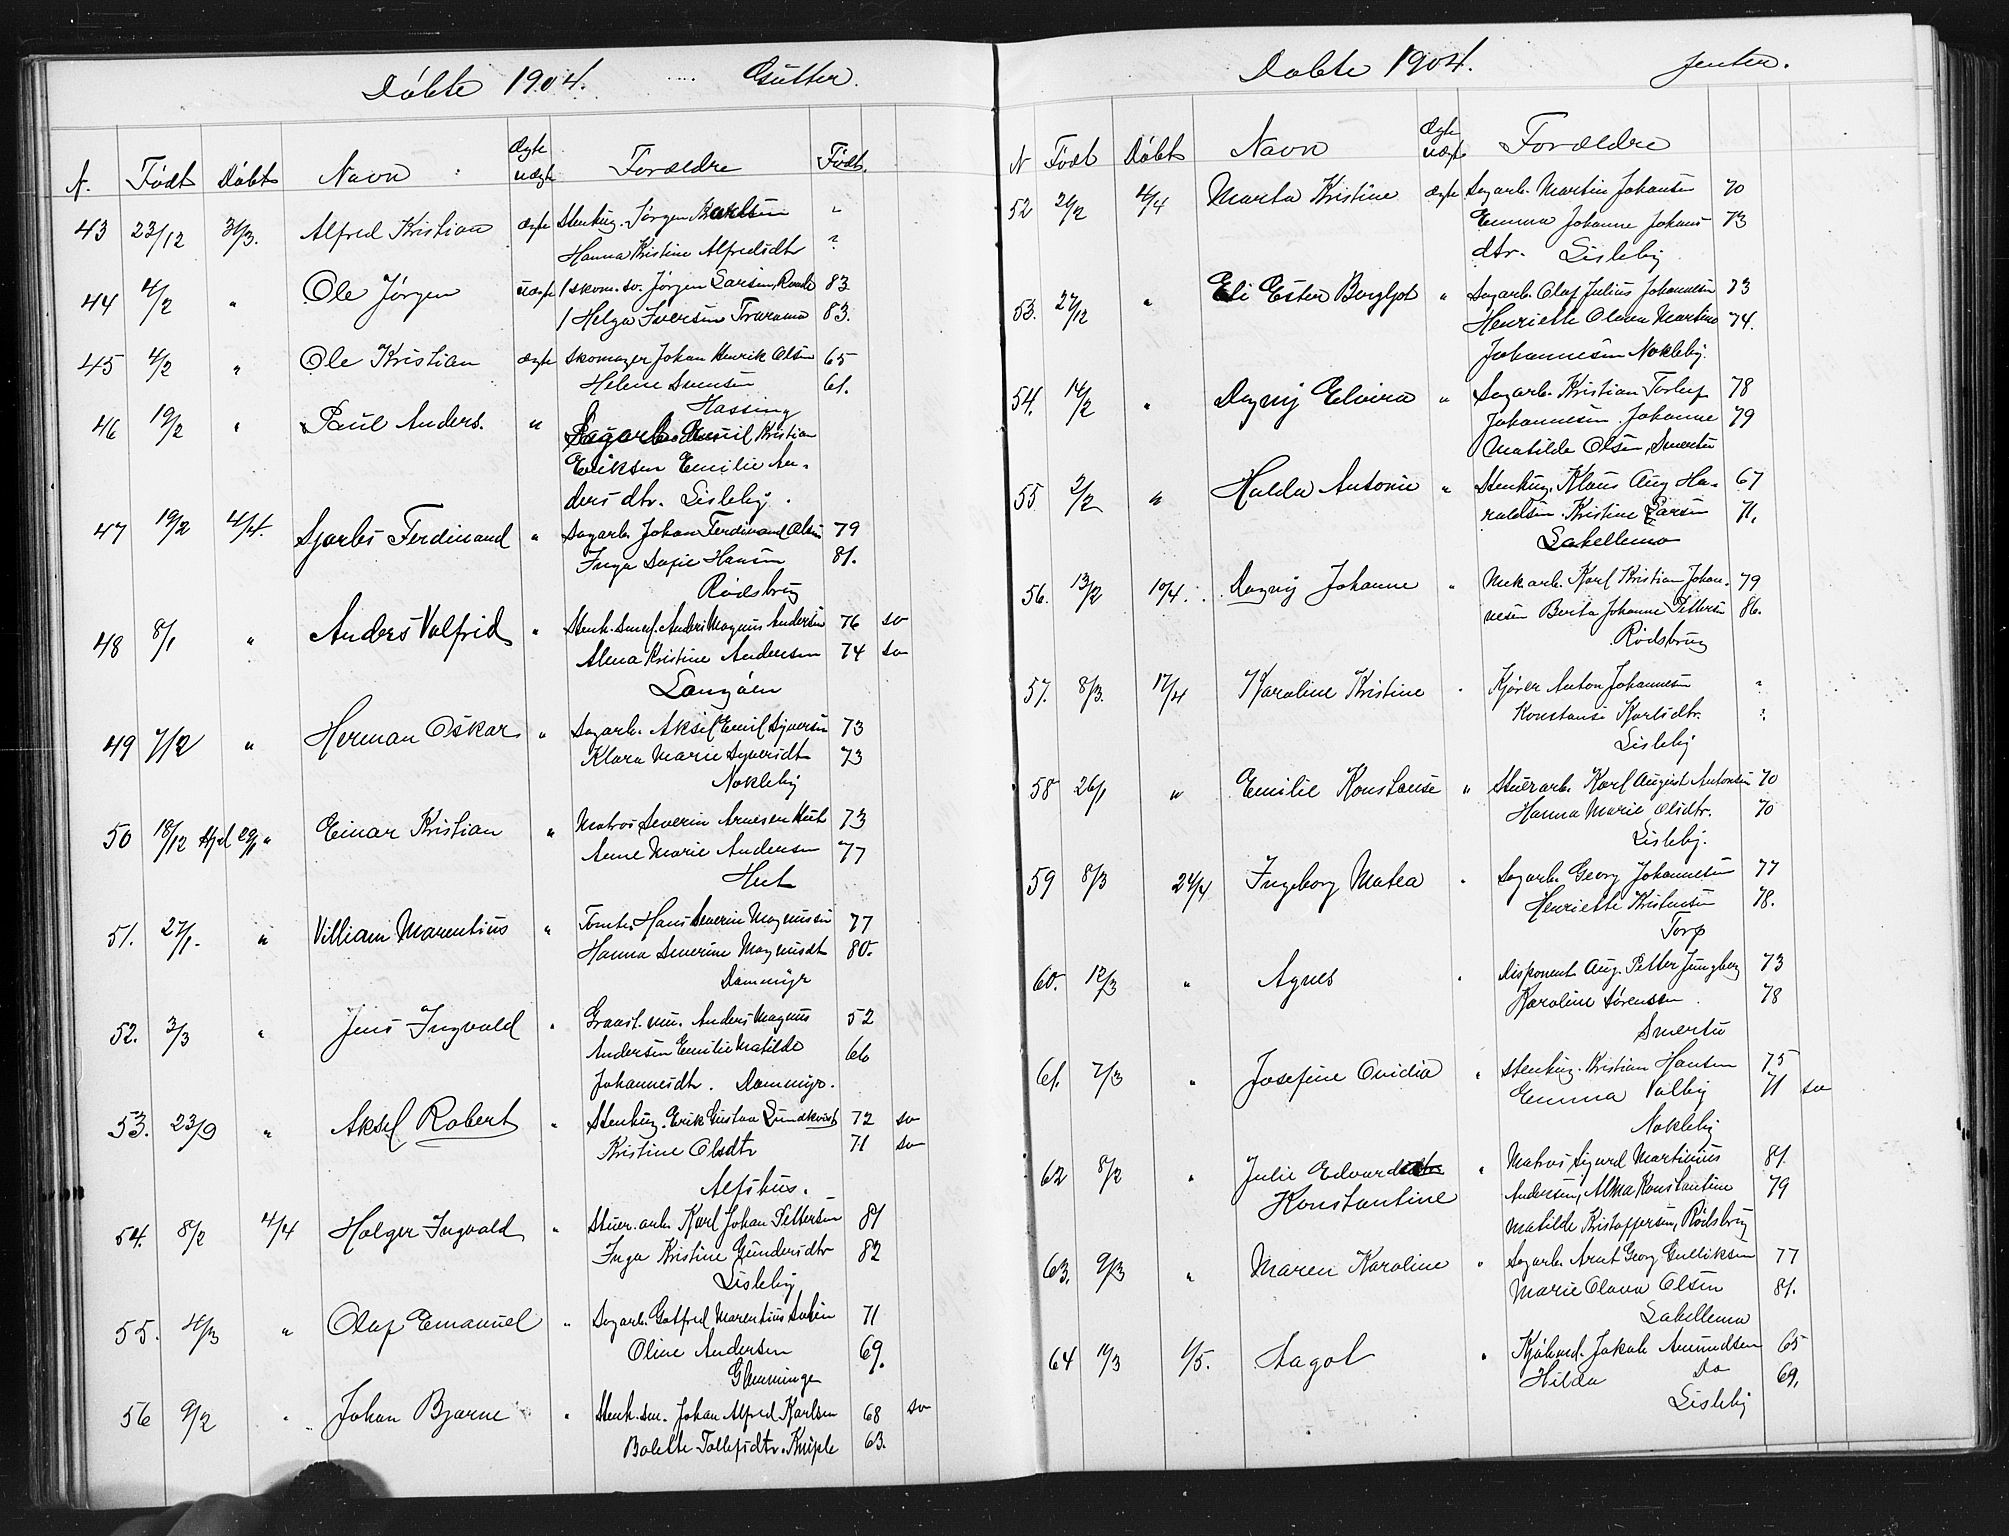 Döbte 1904. Gutter.
N. Født Döbt Navn ægte uægte Forældre Født.
43 23/12 3/3. Alfred Kristian ægte Stenhug. Jørgen Karlsen "
Hanna Kristine Alfredsdtr ?
44 4/2 " Ole Jørgen uægte / skom.sv. Jørgen Larsen, Roald 83
/ Helga Iversen Trarama 83.
45 4/2 " Ole Kristian ægte Skomager Johan Henrik Olsen 65
Helene Svensen 61.
Hassing
46 19/2 " Paul Anders. " Sagarb. Emil Kristian
Eriksen Emilie An-
dersdtr. Lisleby.
47 19/2 4/4. Sjarles Ferdinand " Sagarb. Johan Ferdinand Olsen 79
Inga Sofie Hansen 81.
Rödsbrug
48 8/1 " Anders Valfrid " Stenh. Smed. Anders Magnus Andersen 76 sv
Alma Kristine Andersen 74 sv
Langöen
49 7/2 " Herman Oskar " Sagarb. Aksel Emil Syversen 73
Klara Marie Syversdtr 73
Nokleby
50 18/12 Hjd 29/1 " Einar Kristian " Matros Severin Arnesen Hut 73
Anne Marie Andersen 77
Hut
51. 27/1. " Villiam Marentius " Tomte. Hans Severin Magnussen 77
Hanna Severine Magnusdtr 80.
Dammyr
52. 3/3 " Jens Ingvald " Graast. mu. Anders Magnus 52
Andersen Emilie Matilde 66
Johannesdtr. Dammyr.
53. 23/9 " Aksel Robert " Stenhug. Erik Gustav Lundkvist 72 sv
Kristine Olsdtr 71 sv
Alfshus.
54. 8/2 4/4 Holger Ingvald " Stuer.arb. Karl Johan Pettersen 81
Inga Kristine Gundersdtr 82
Lisleby
55. 4/3 " Olaf Emanuel " Sagarb. Gotfred Marentius 71
Oline Andersen 69.
Glemminge
56 9/2 " Johan Bjarne " Stenh.sm. Johan Alfred Karlsen 68 sv
Bolette Tollefsdtr. Kniple 63.
Dobte 1904. Jenter.
N Født Döbt Navn ægte uægt Forældre
52 26/2 4/4 Marta Kristine ægte Sagarb. Martin Johansen 70
Emma Johanne Johans 73
dtr. Lisleby
53. 27/12 " Eli Ester Bergljot " Sagarb. Olaf Julius Johannesen 73
Henriette Olava Martine 74.
Johannesen Nokleby.
54. 14/2 " Dagny Elvira " Sagarb. Kristian Torleif 78
Johannesen. Johanne 79
Matilde Olsen, Smertu
55 2/2 " Halda Antonie " Stenhug. Klaus Aug Ha- 67
raldsen. Kristine Larsen 71.
Labellemo
56. 13/2 10/4. Dagny Johanne " Mekarb. Karl Kristian Johan- 79
nesen Berta Johanne Pettersen 86.
Rödsbrug
57. 8/3. 17/4 Karoline Kristine " Kjører Anton Johannesen "
Konstanse Karlsdtr. ?
Lisleby
58 26/1 " Emilie Konstanse " Stuerarb. Karl August Antonsen 70
Hanna Marie Olsdtr. 70
Lisleby.
59 8/3 24/4 Ingeborg Matea " Sagarb. Georg Johannesen 77
Henriette Kristensen 78.
Torp
60. 12/3 " Agnes " Disponent Aug. Petter Jungberg 73
Karoline Sørensen. 78
Smertu
61. 7/3 " Josefine Ovidia " Stenhug. Kristian Hansen 75
Emma Valby 71 sv
Nokleby
62 8/2 " Julie Edvard " Matros Sigurd Martinius 81.
Konstantine Andersen, Alma Konstantine 79
Matilde Kristoffersen, Rödsbrug
63. 9/3 " Maren Karoline " Sagarb. Arnt Georg Gulliksen 77
Marie Olava Olsen 81.
Labellemo
64 11/3 1/5. Aagot " Kjöbmd. Jakob Amundsen 65
Hilda Do 69.
Lisleby